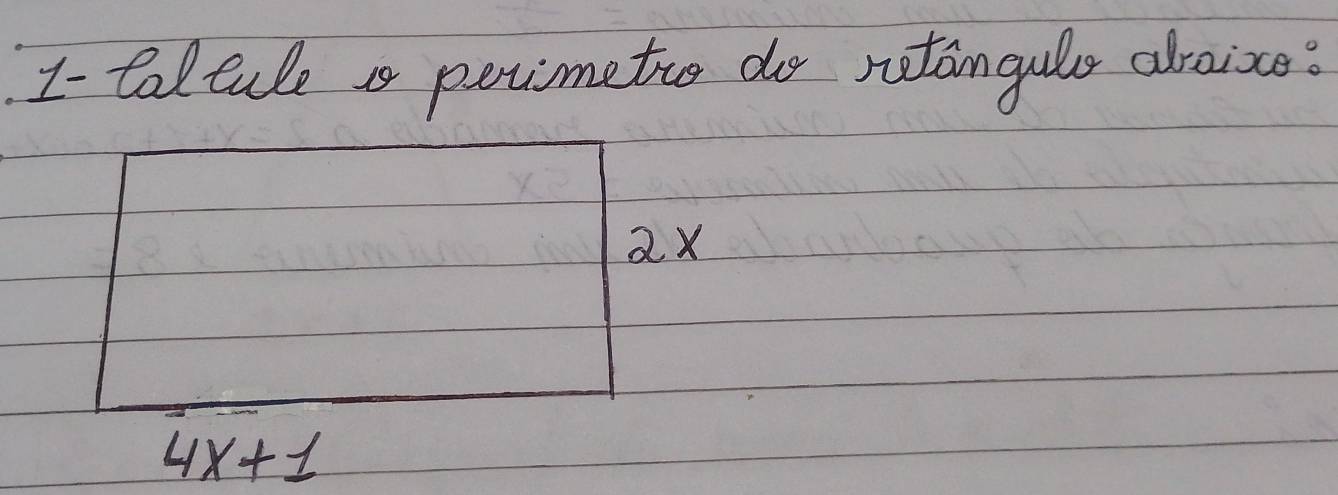 1- Calcule o perimetro do retângulo abaixo:
2x
4x+1